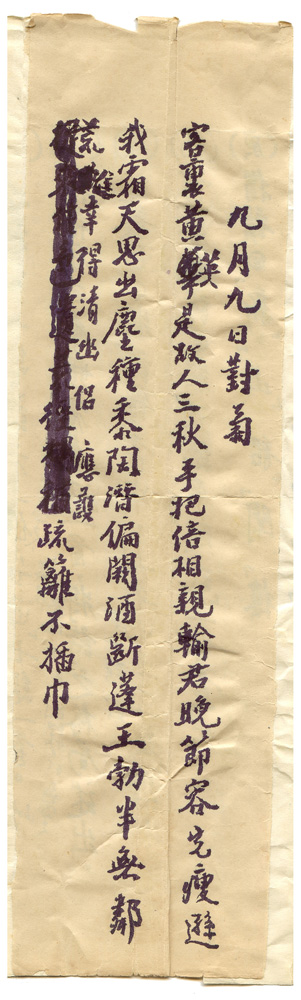 九月九日對菊
客裏黃英是故人三秋手把倍相親輸君晚節容先瘦遜
我霜天思出塵種黍陶潛偏闕酒斷蓬王勃半無鄰
荒幸得清幽侶應護
疏籬不插巾